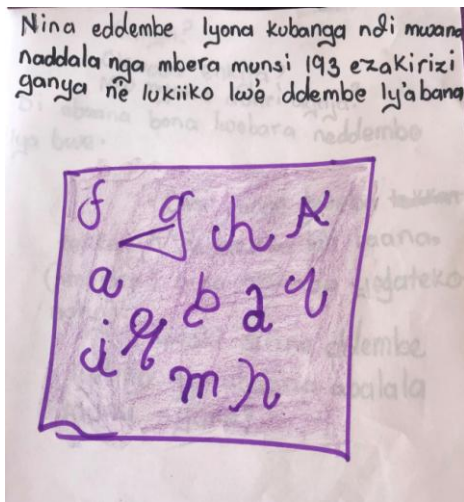 Nina eddembe lyona kubanga ndi mwana
naddala nga mbera munsi 193 ezakirizi
ganya ne lukiiko lwe ddembe ly'abana
f g h k
a b d q
i q m n